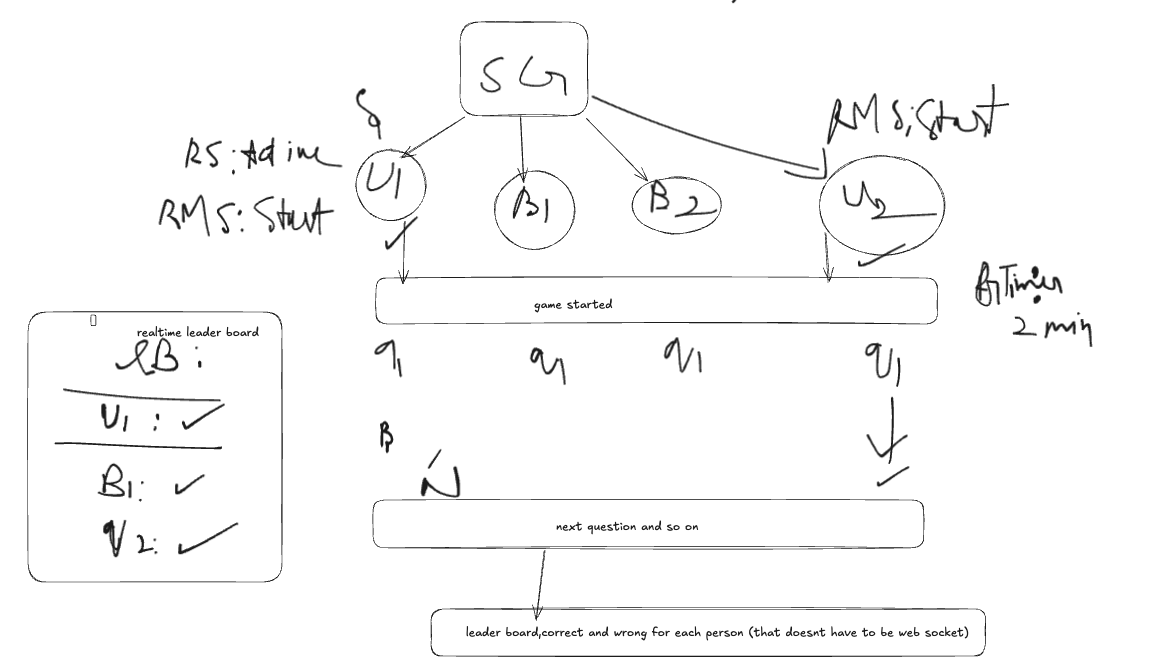 SG
RMS: Start
RS: Active
U1
RMS: Start
B1
B2
U2
game started
Timer:
2 min
realtime leader board
LB:
U1: ✓
B1: ✓
U2: ✓
q1
q1
q1
q1
B
N
next question and so on
leader board,correct and wrong for each person (that doesnt have to be web socket)